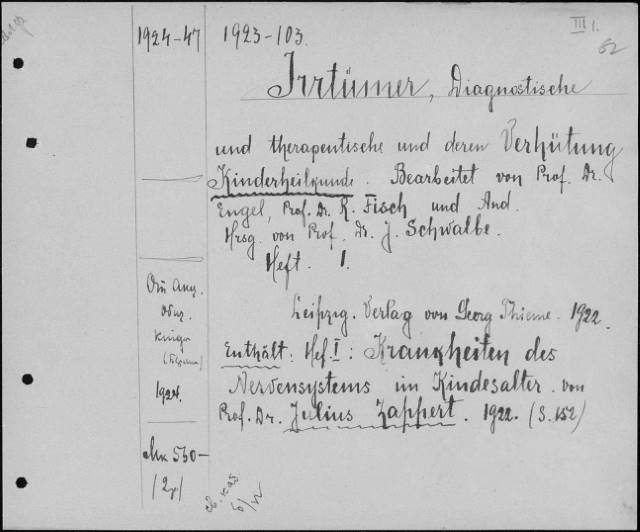 1924-47
1923-103.
III 1.
52
Irrtümer, Diagnostische
und therapeutische und deren Verhütung
Kinderheilkunde. Bearbeitet von Prof. Dr.
Engel, Prof. Dr. R. Fisch und And.
Hrsg. von Prof. Dr. J. Schwalbe.
Heft. 1.
Leipzig. Verlag von Georg Thieme. 1922.
Enthält: Hef. I: Krankheiten des
Nervensystems im Kindesalter von
Prof. Dr. Julius Zappert. 1922. (S. 152)
1924.
530-
/2/